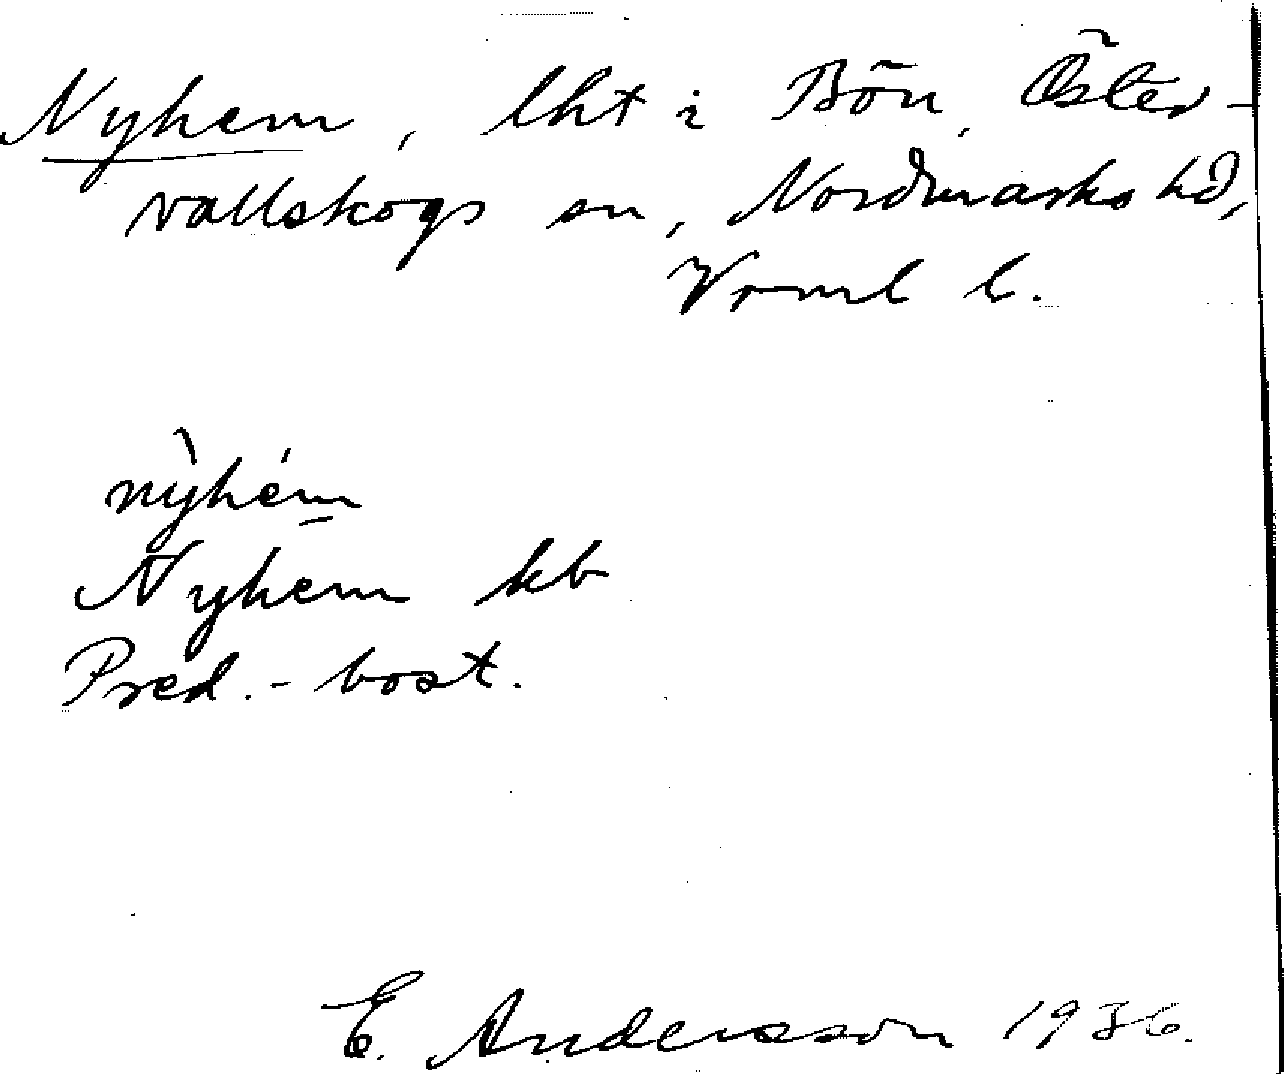 Nyhem, lht i Bön, Öster-
vallskogs sn, Nordmarks hd,
Vrml l.
nỳhém
Nyhem kb
Pred.-bost.
E. Andersson 1936.